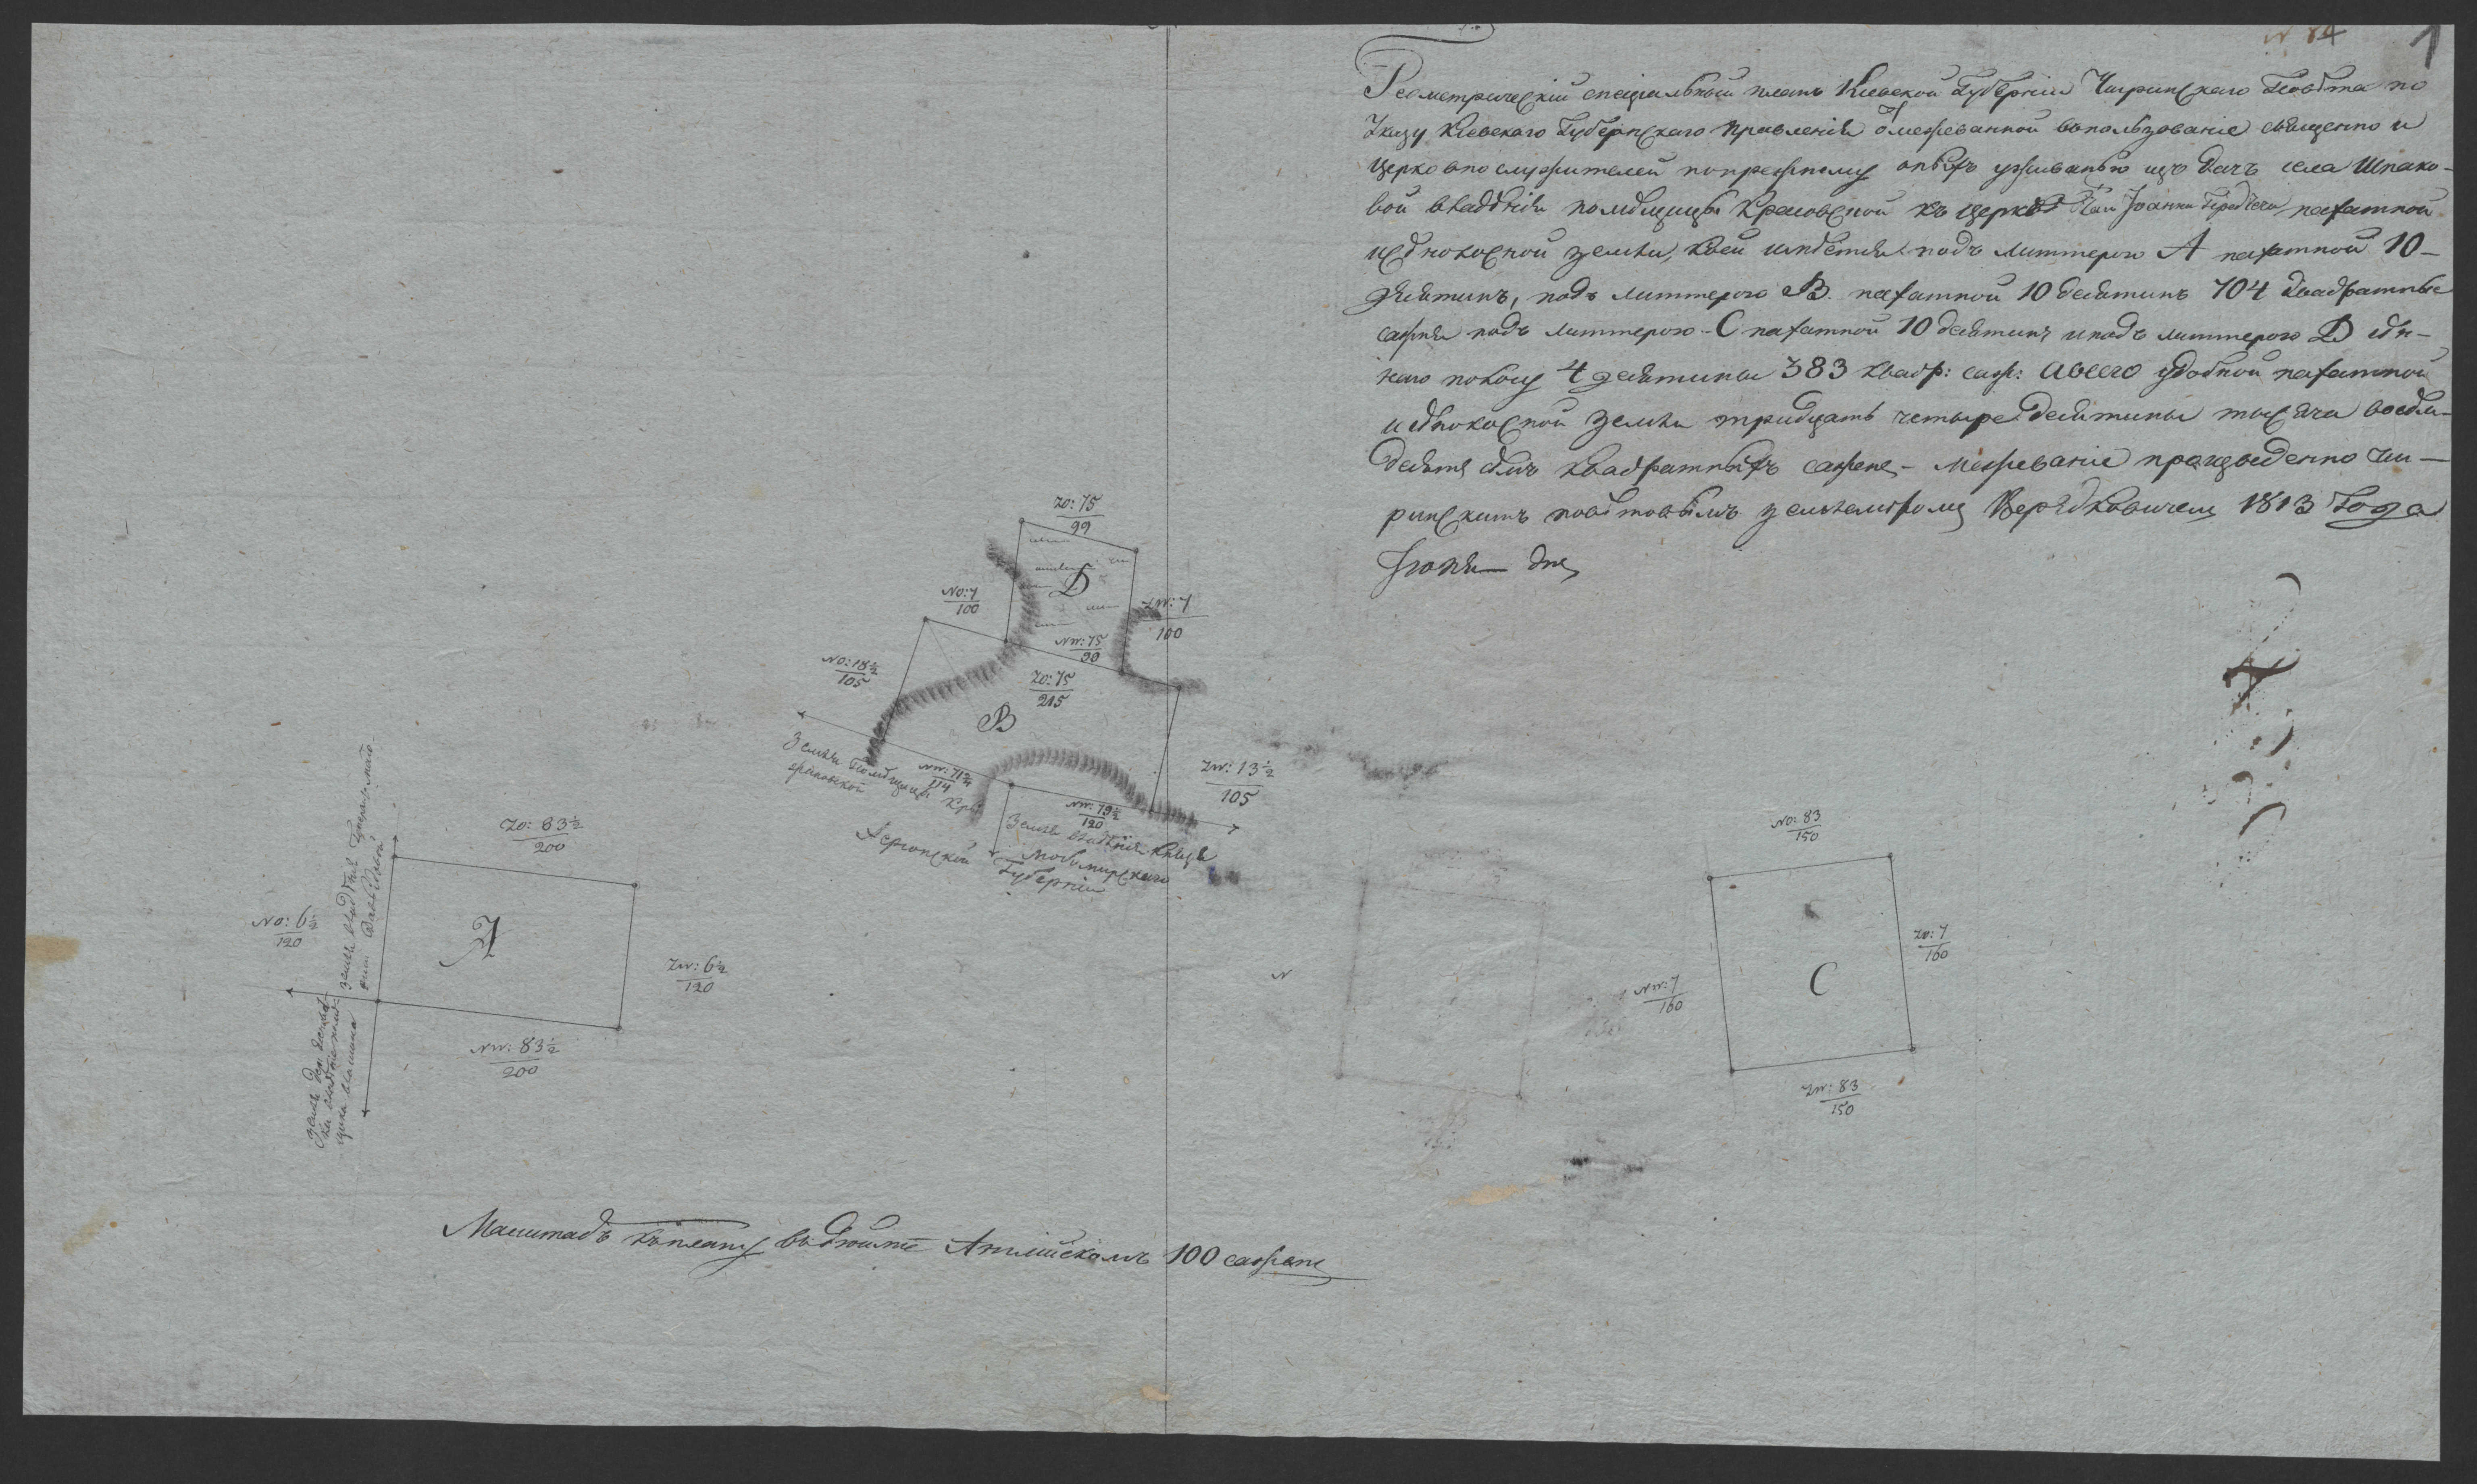 N 84
1
Геометрическій спеціальный планъ Кіевской Губерніи Чигринскаго Повѣта по
Указу Кіевскаго Губернскаго Правленія Омежеванной вопользование священно и
церковно служителей попрежнему оныхъ уживанью изъ дачъ села Шпако-
вой владѣнія помѣщицы Красовской къ церкве Іоанна Предтечи пахатной
исѣнокосной земли, коей имѣется подъ литтерою А пахатной 10-
десятинъ, подъ литтерою B. пахатной 10 десятинъ 704 квадратные
сажня подъ литтерою C пахатной 10 десятинъ иподъ литтерою D сѣн-
наго покосу 4 десятины 383 квадр: саж: авсего удобной пахатной
исѣнокосной земли тридцать четыре десятины тысяча восѣм-
десятъ сѣмъ квадратныхъ сажень - межеваніе произведенно Чи-
ринскимъ повѣтовымъ землемѣромъ 1813 Года
Іюня — дня
ZO: 75
99
D
NO: 7
100
ZW: 7
100
NW: 75
99
NO: 18½
105
ZO: 75
215
B
ZW: 13½
105
Земли Помѣщицы
NW: 71¾
114
NW: 79½
120
Земля владѣнія Князя
Любомирскаго
Херсонской Губерніи
ZO: 83½
200
NO: 6½
120
земля владѣнія
A
ZW: 6½
120
NW: 83½
200
NO: 83
150
ZO: 7
160
C
NW: 7
160
ZW: 83
150
N
Маштабъ къплану въдюймѣ Англійскомъ 100 сажень